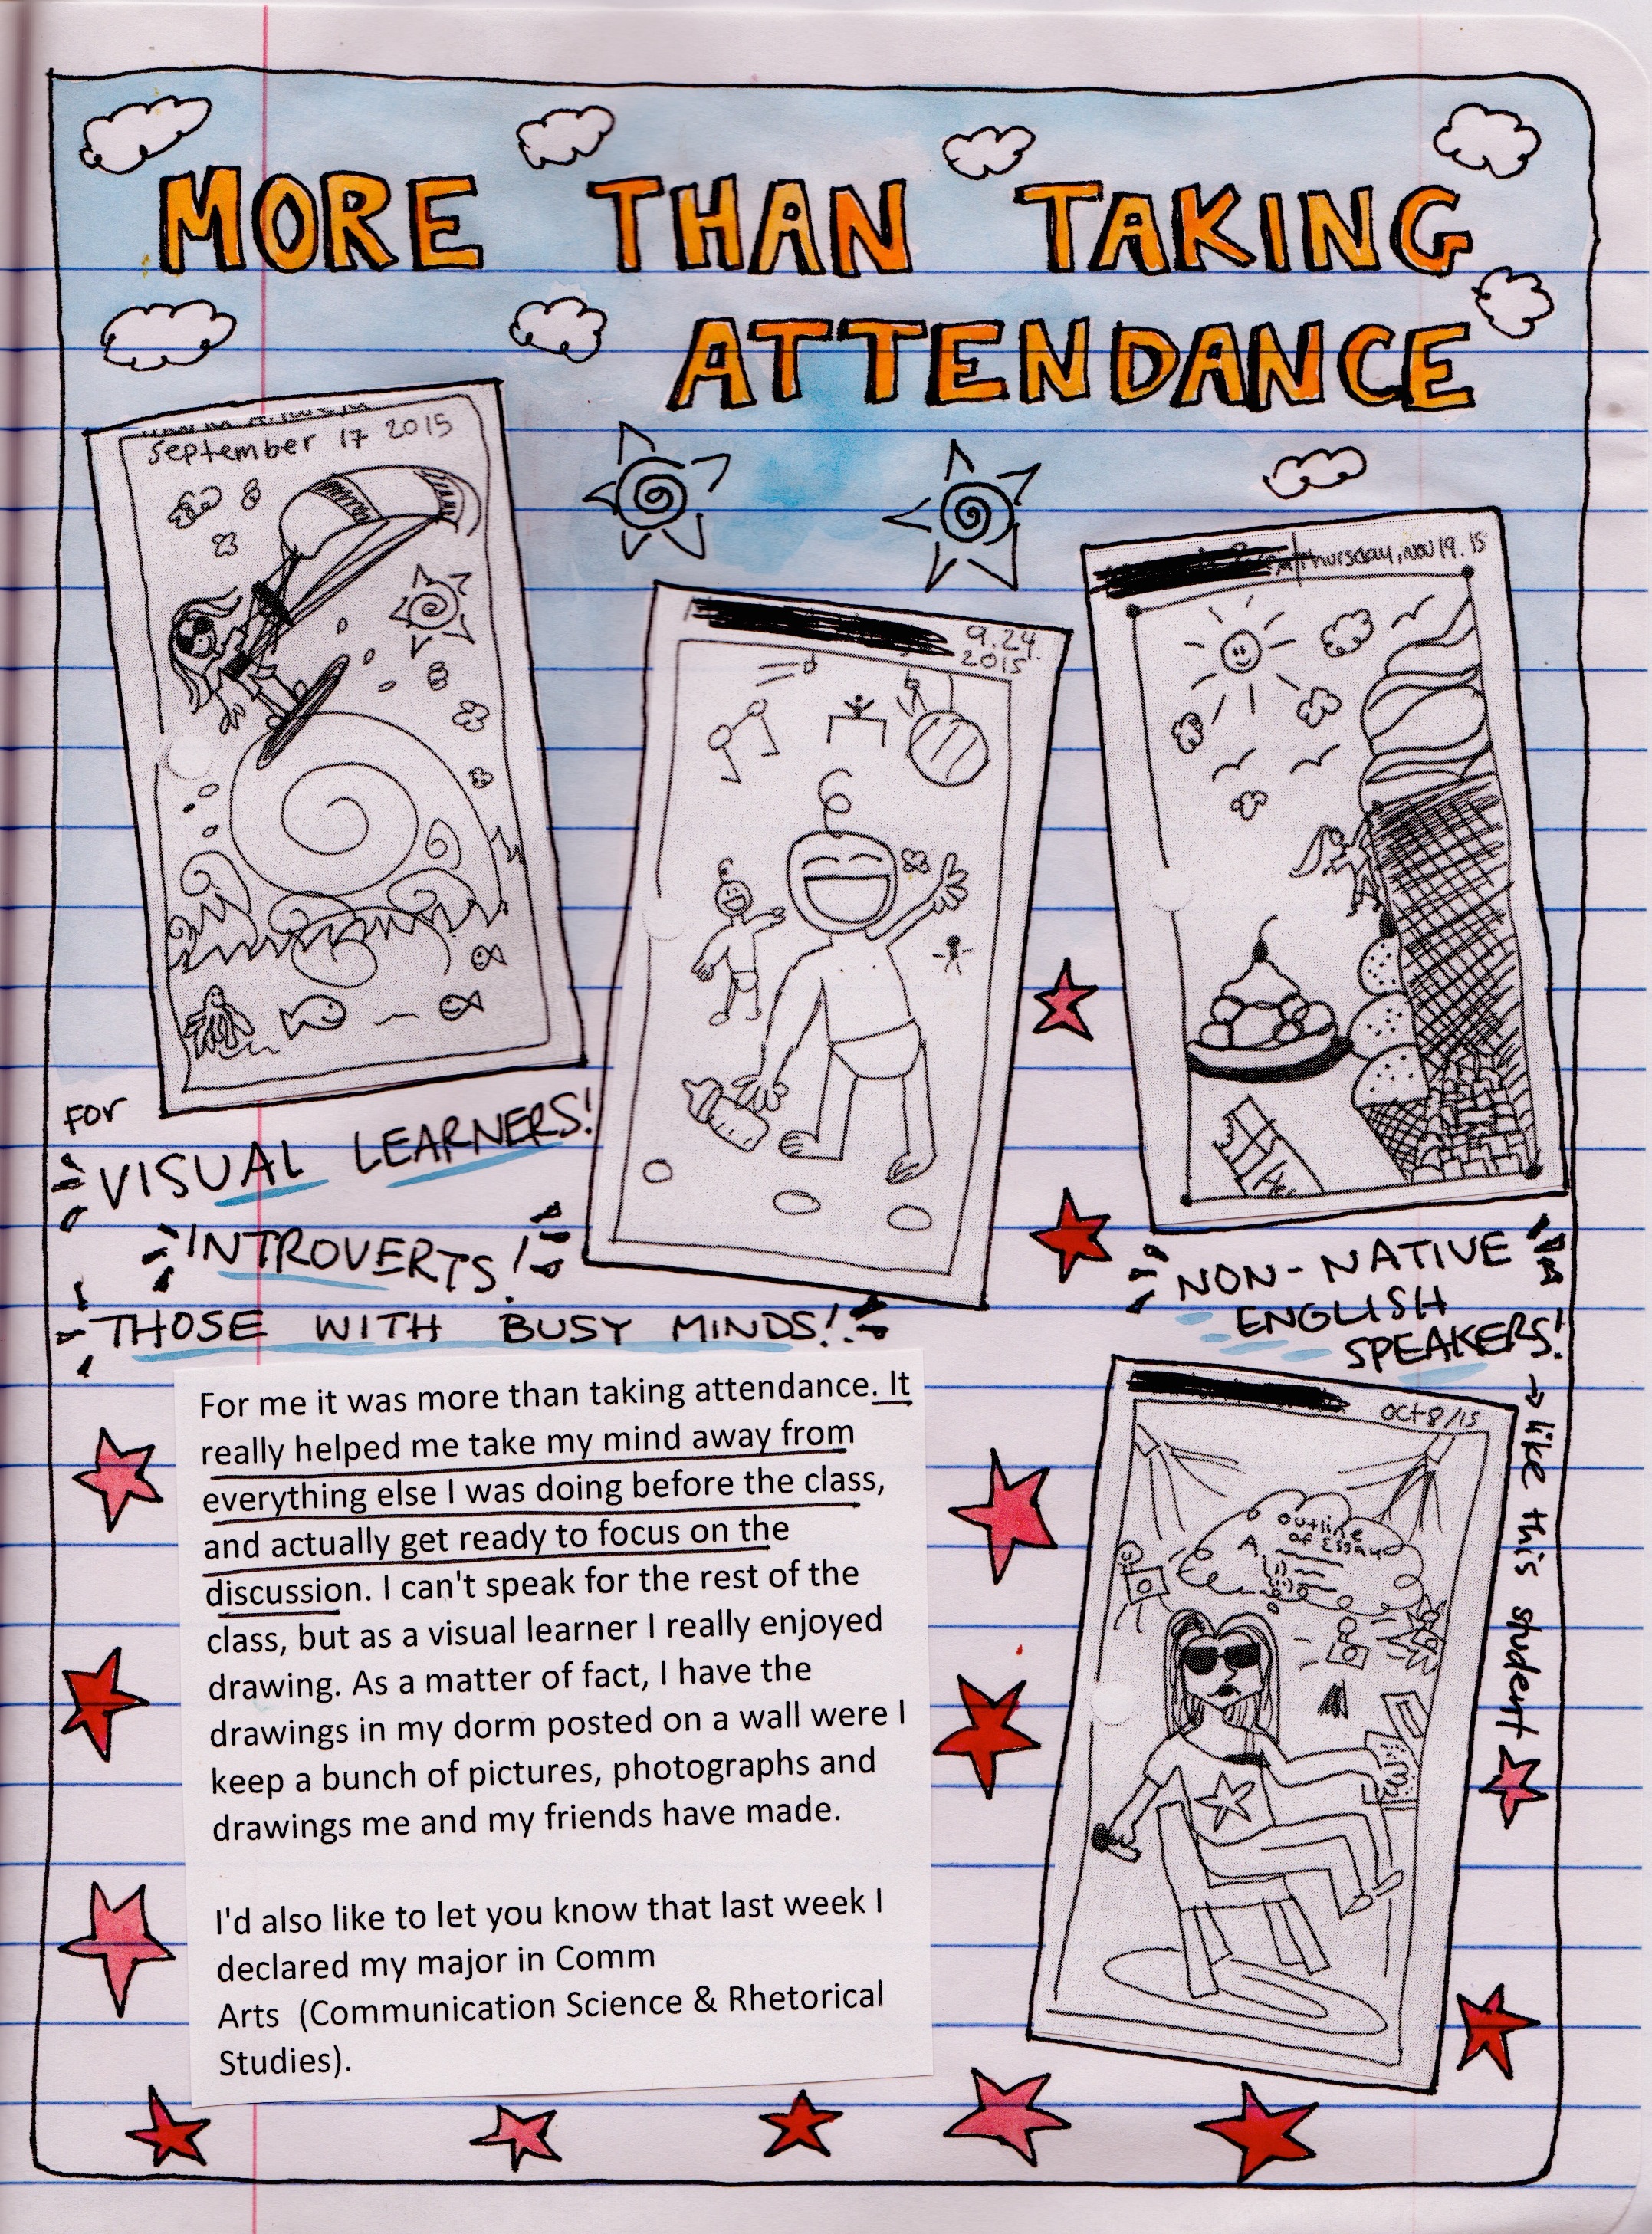 MORE THAN TAKING
ATTENDANCE
September 17 2015
9.24.
2015
Thursday, NOV 19. 15
FOR
VISUAL LEARNERS!
INTROVERTS!
THOSE WITH BUSY MINDS!!
NON-NATIVE
ENGLISH
SPEAKERS!
→ like this student
For me it was more than taking attendance. It
really helped me take my mind away from
everything else I was doing before the class,
and actually get ready to focus on the
discussion. I can't speak for the rest of the
class, but as a visual learner I really enjoyed
drawing. As a matter of fact, I have the
drawings in my dorm posted on a wall were I
keep a bunch of pictures, photographs and
drawings me and my friends have made.
I'd also like to let you know that last week I
declared my major in Comm
Arts (Communication Science & Rhetorical
Studies).
Oct 8/15
outline
of Essay
A.